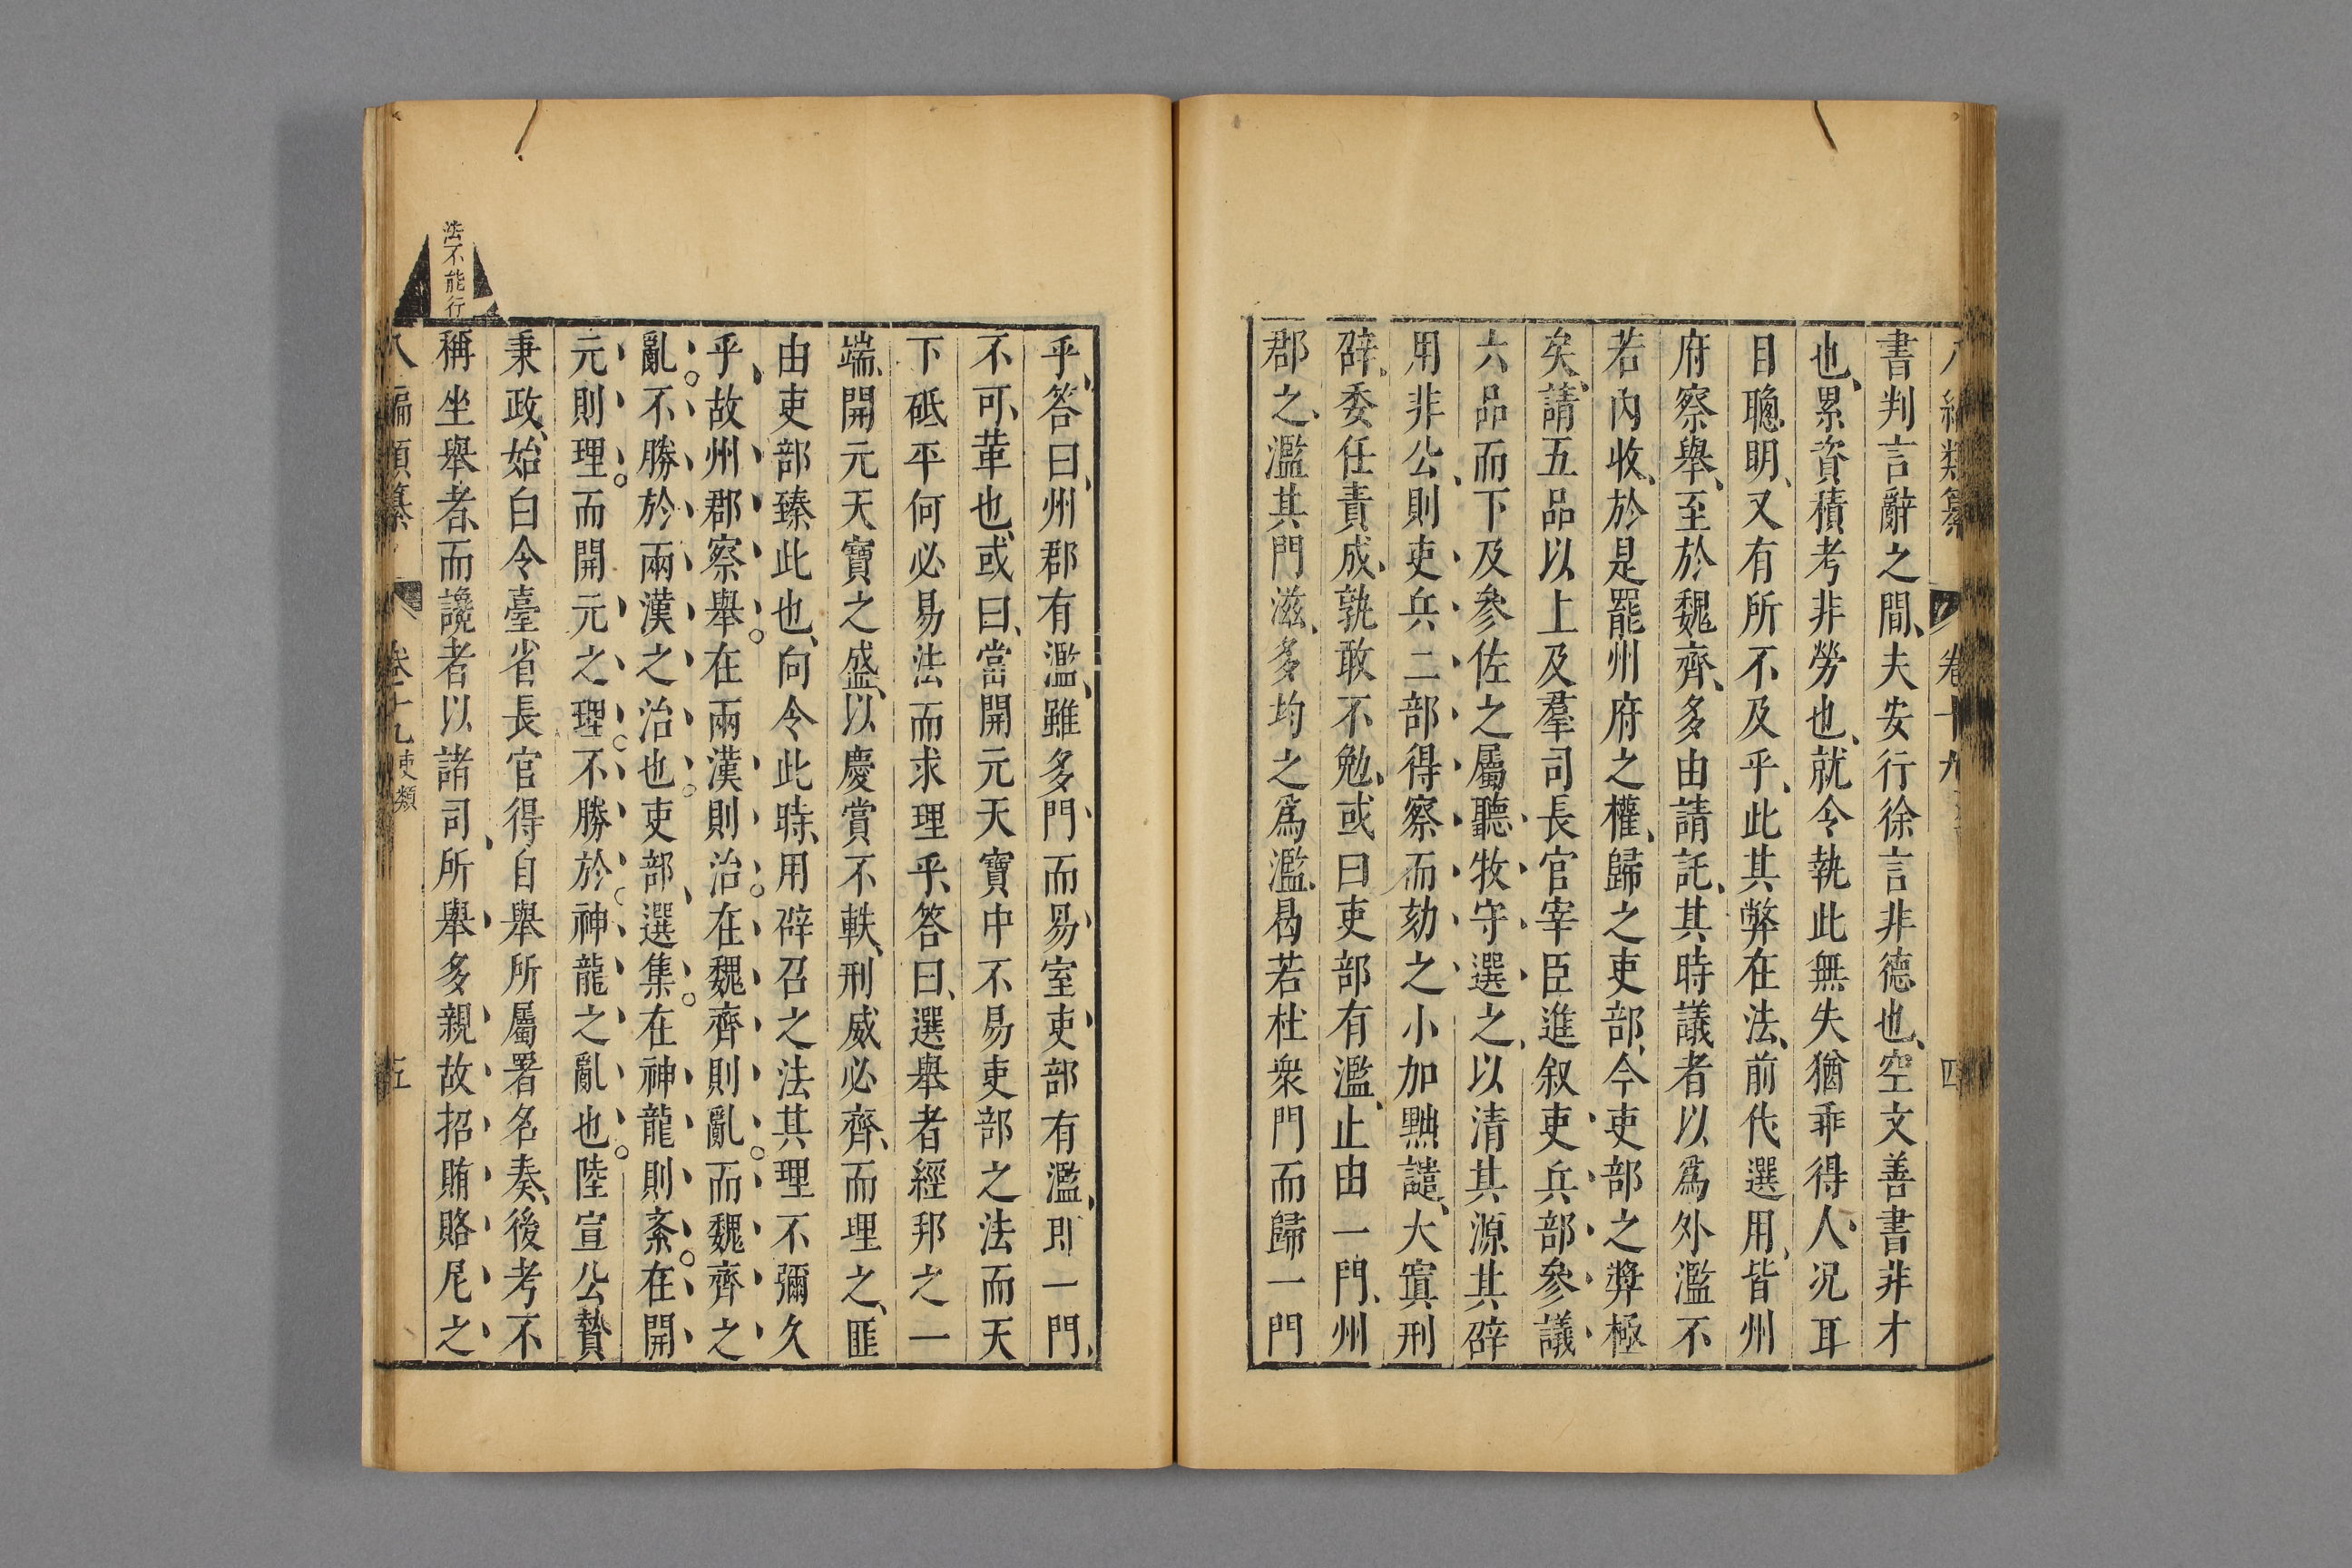 書判言辭之間、夫安行徐言非德也、空文善書非才
也、累資積考非勞也、就令執此無失猶乖得人、况耳
目聰明、又有所不及乎、此其弊在法、前代選用、皆州
府察舉、至於魏齊、多由請託、其時議者以爲外濫不
若內收、於是罷州府之權、歸之吏部、今吏部之弊極
矣、請五品以上及羣司長官宰臣進叙吏兵部參議
六品而下及參佐之屬聽牧守選之、以清其源其辟
用非公、則吏兵二部得察而劾之小加黜譴、大寘刑
辟、委任責成、孰敢不勉、或曰吏部有濫、止由一門、州
郡之濫其門滋多、均之爲濫、曷若杜衆門而歸一門
乎、答曰、州郡有濫、雖多門而易室吏部有濫、則一門
不可革也、或曰、當開元天寶中不易吏部之法而天
下砥平何必易法而求理乎、答曰、選舉者經邦之一
端、開元天寶之盛、以慶賞不軼、刑威必齊、而理之、匪
由吏部臻此也、向令此時、用辟召之法其理不彌久
乎、故州郡察舉。在兩漢則治。在魏齊則亂。而魏齊之
亂。不勝於兩漢之治也。吏部選集。在神龍則紊。在開
元則理。而開元之理。不勝於神龍之亂也。陸宣公贄
秉政、始白令臺省長官得自舉所屬署名奏、後考不
稱坐舉者、而讒者以諸司、所舉多親故招賄賂尼之
法不能行
八編類纂 卷十九 吏類 五
卷十九 四